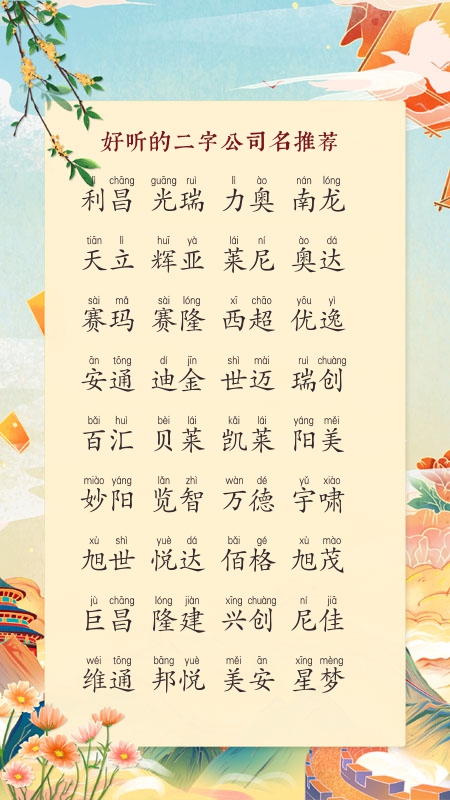 好听的二字公司名推荐
lì chāng guāng ruì lì ào nán lóng
利昌 光瑞 力奥 南龙
tiān lì huī yà lái ní ào dá
天立 辉亚 莱尼 奥达
sài mǎ sài lóng xī chāo yōu yì
赛玛 赛隆 西超 优逸
ān tōng dí jīn shì mài ruì chuàng
安通 迪金 世迈 瑞创
bǎi huì bèi lái kǎi lái yáng měi
百汇 贝莱 凯莱 阳美
miào yáng lǎn zhì wàn dé yǔ xiào
妙阳 览智 万德 宇啸
xù shì yuè dá bǎi gé xù mào
旭世 悦达 佰格 旭茂
jù chāng lóng jiàn xīng chuàng ní jiā
巨昌 隆建 兴创 尼佳
wéi tōng bāng yuè měi ān xīng mèng
维通 邦悦 美安 星梦